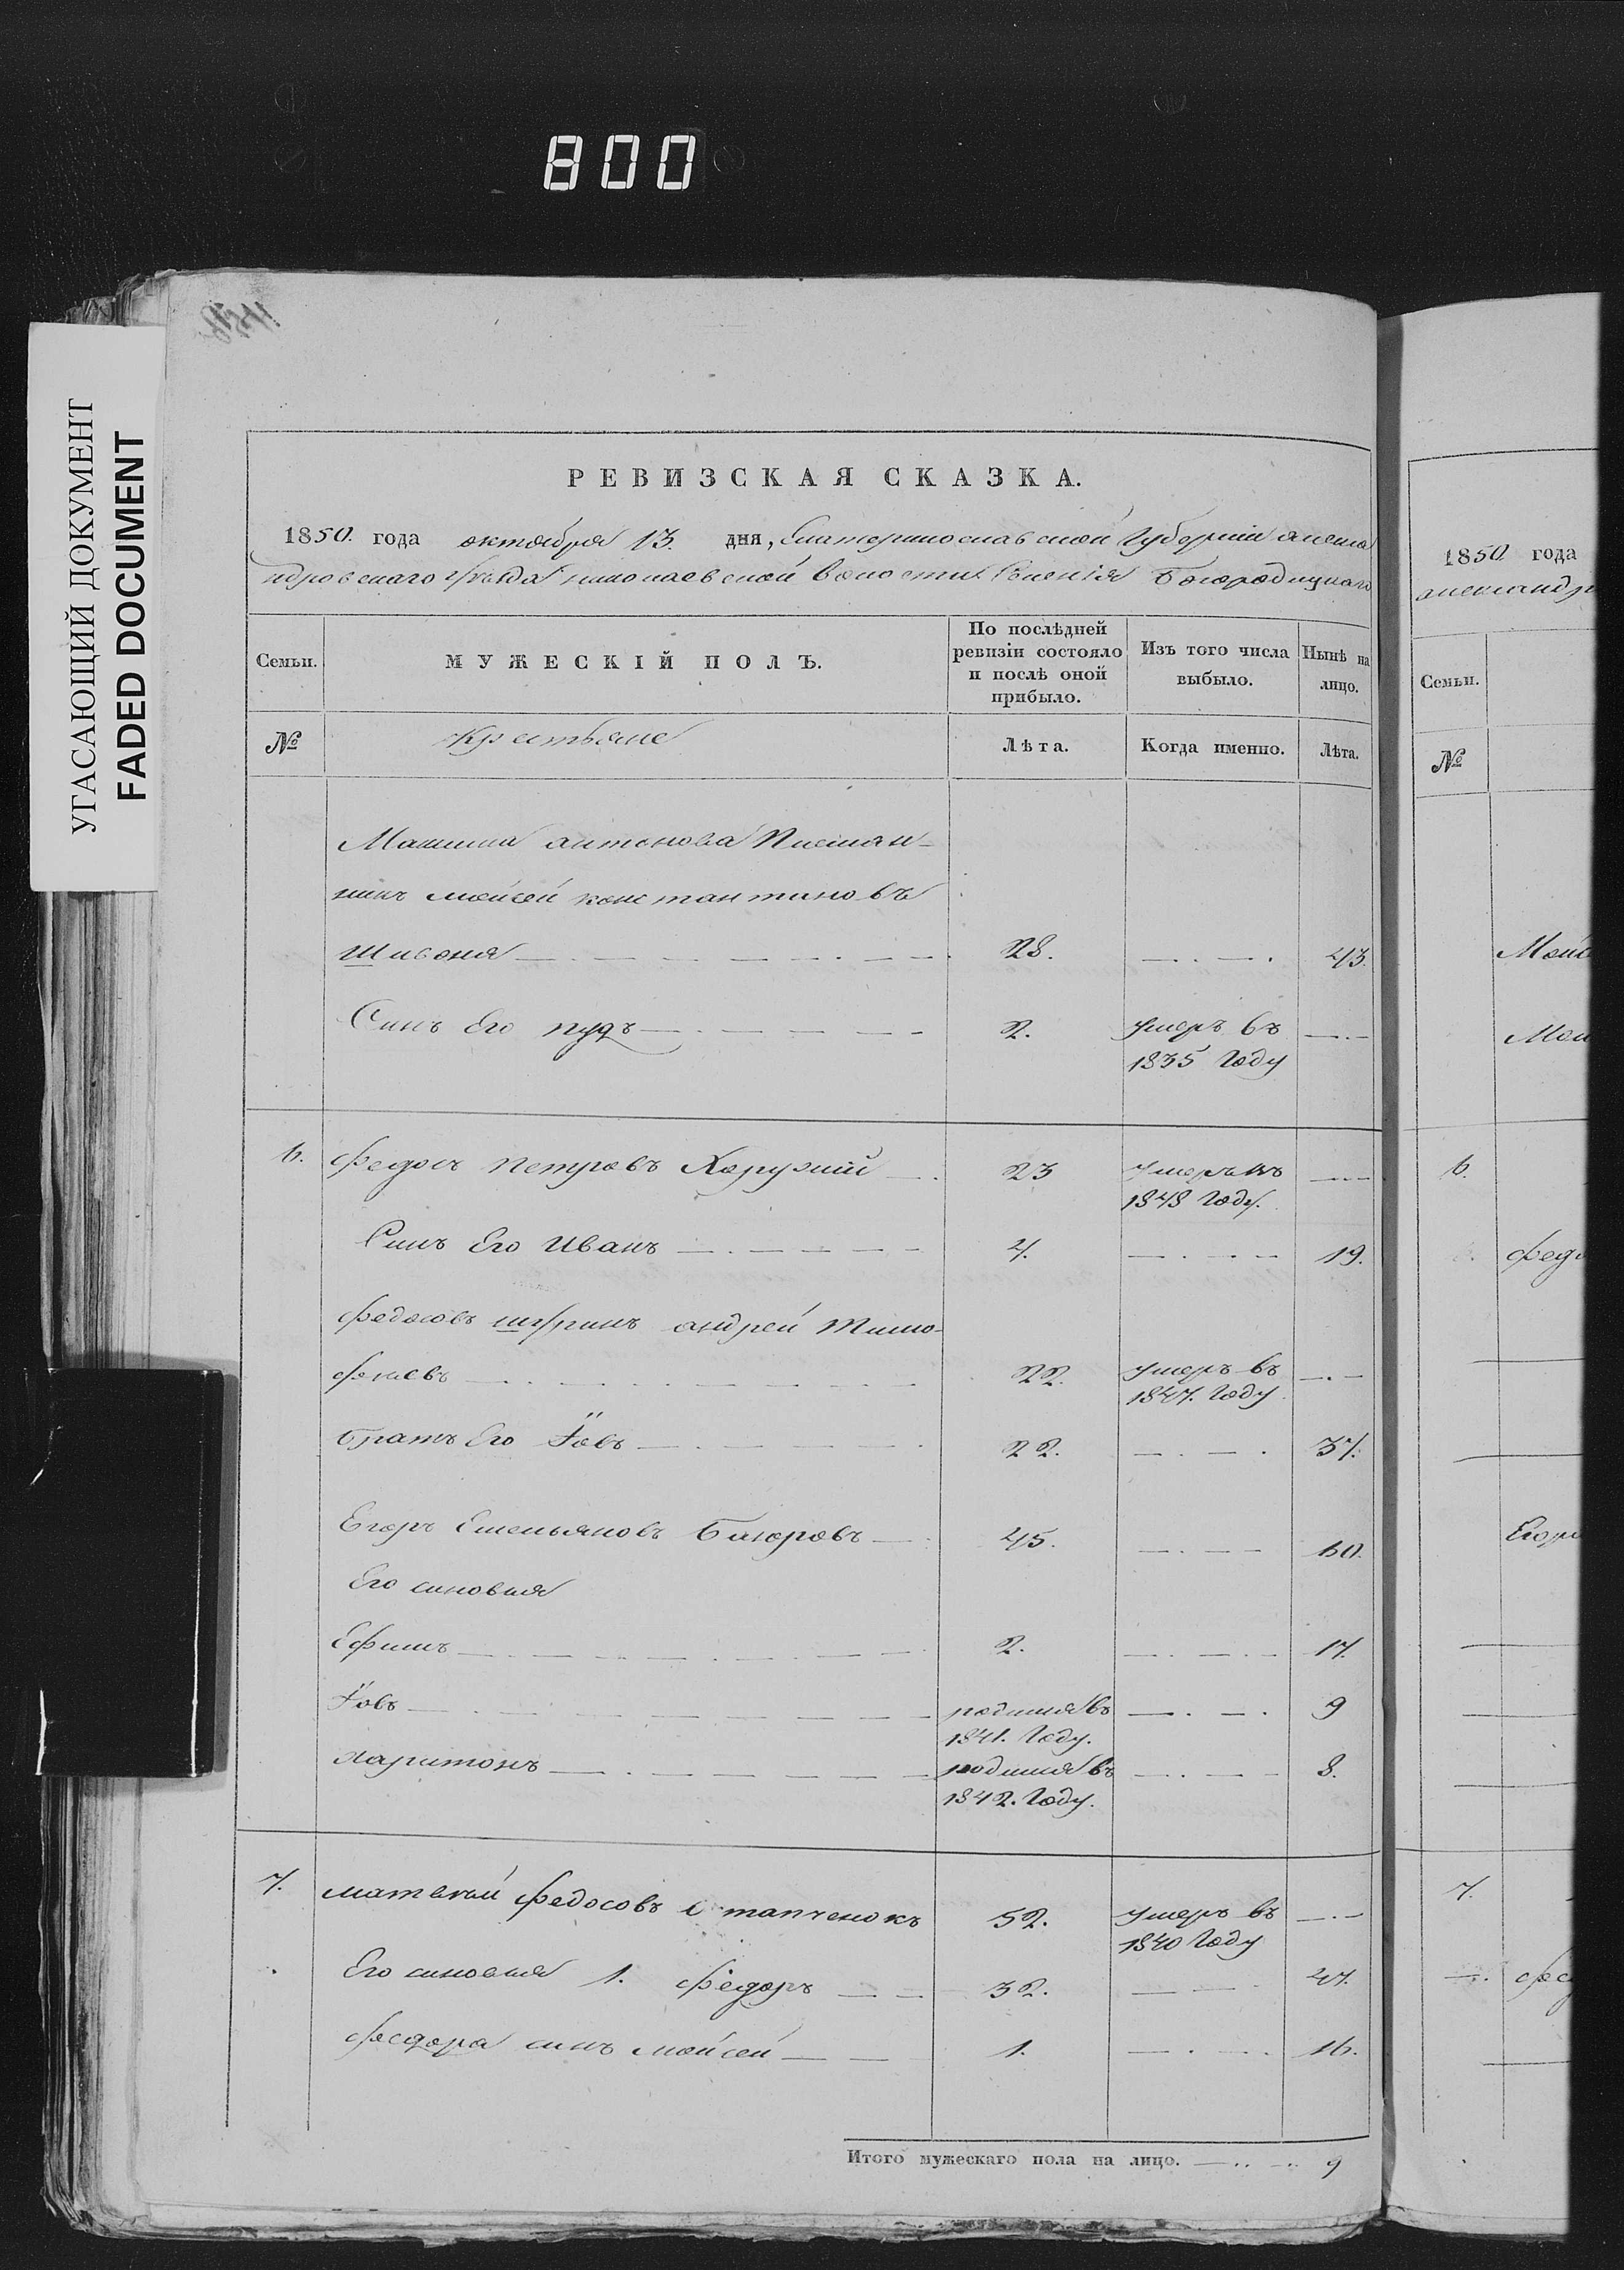 800
УГАСАЮЩИЙ ДОКУМЕНТ
FADED DOCUMENT
РЕВИЗСКАЯ СКАЗКА.
1850. года октября 13. дня, Екатеринославской Губерніи алекса
ндровскаго уѣзда николаевской волости Селенія Богородицкаго
Семьи. МУЖЕСКІЙ ПОЛЪ. По послѣдней ревизіи состояло и послѣ оной прибыло. Изъ того числа выбыло. Нынѣ на лицо.
№ Крестьяне Лѣта. Когда именно. Лѣта.
антонова Племян-
никъ мойсей константиновъ
28. 43.
Синъ Его пудъ 2. умеръ въ
1835 Году
6. Федосъ Петровъ Харужий 23 умеръ въ
1848 Году.
Синъ Его Иванъ 4. 19.
Федосовъ шуринъ андрей Тимо-
феіевъ 22. умеръ въ
1847. Году
братъ Его Іовъ 22. 37.
Егоръ Емельяновъ 45. 60.
Его синовия
Ефимъ 2. 17.
Іовъ родился въ 9
1841. Году.
харитонъ родился въ 8.
1842. Году.
7. матвѣй Федосовъ Остапченокъ 52. умеръ въ
1840 Году
Его синовия 1. Федоръ 32. 47.
Феодора синъ мойсей 1. 16.
Итого мужескаго пола на лицо. 9
1850 года
александр
Семьи.
№
Мойс
6.
Федо
Егор
7.